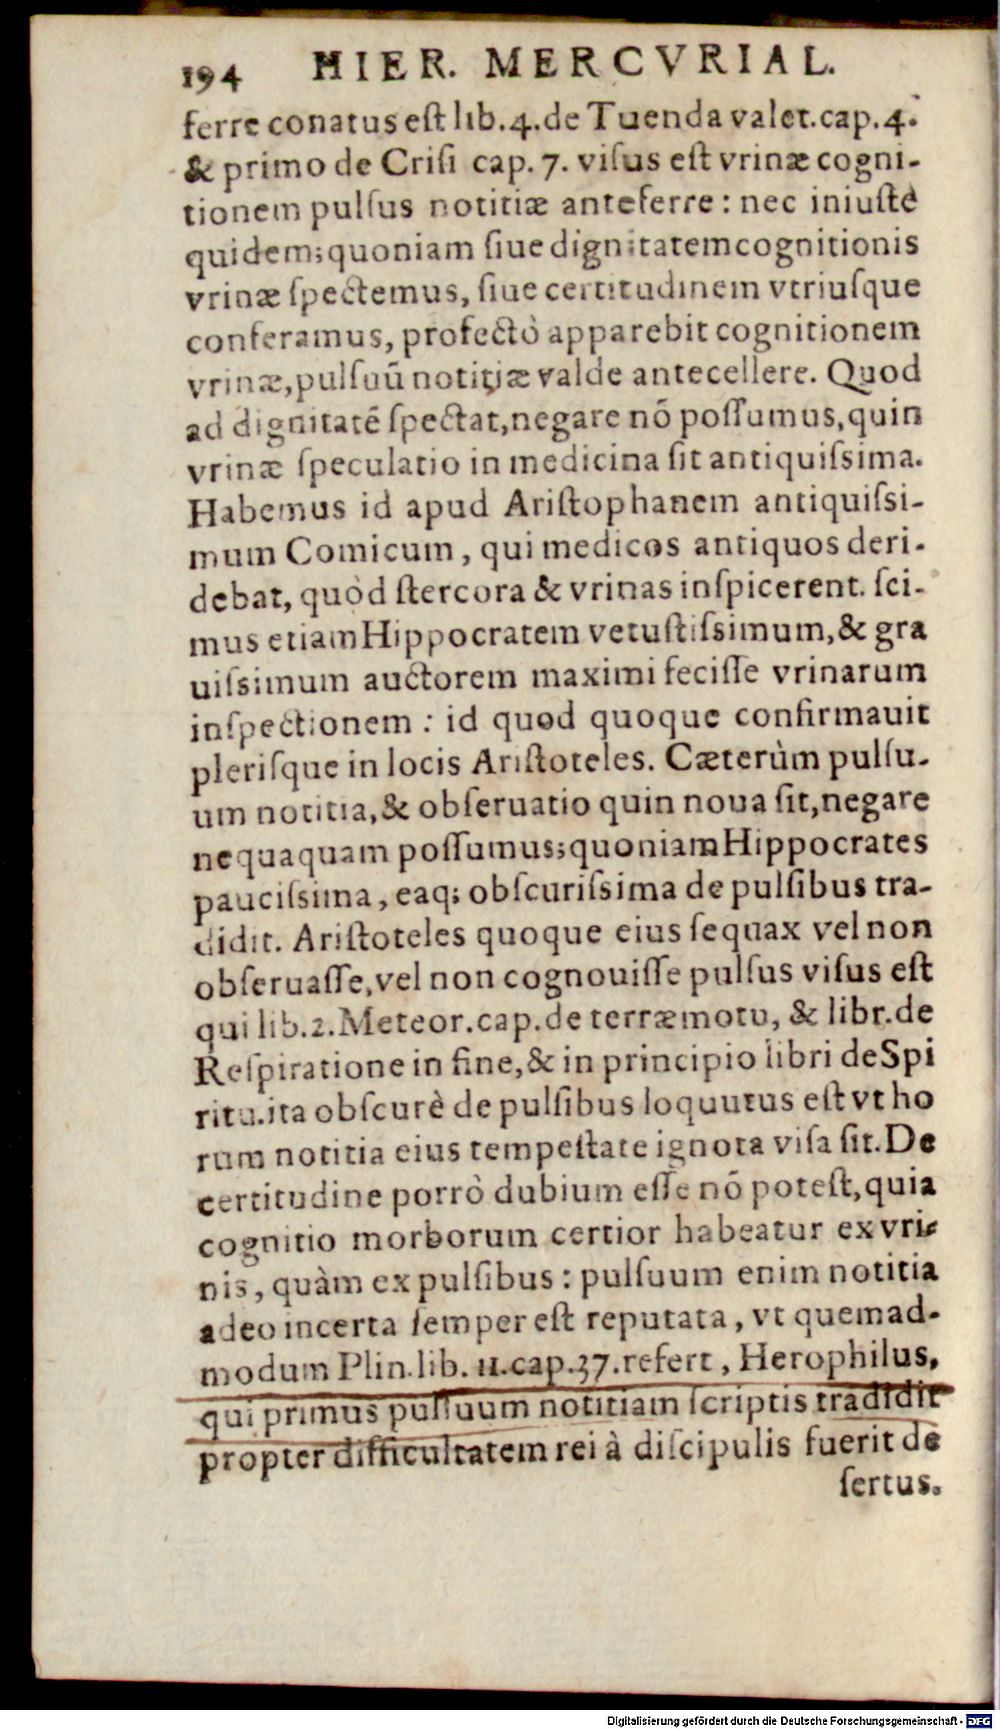 194 HIER. MERCVRIAL.
ferre conatus eſt lib.4.de Tuenda valet.cap.4.
& primo de Criſi cap. 7. viſus eſt vrinæ cogni-
tionem pulſus notitiæ anteferre : nec iniuſtè
quidem;quoniam ſiue dignitatem cognitionis
vrinæ ſpectemus, ſiue certitudinem vtriuſque
conferamus, profectò apparebit cognitionem
vrinæ,pulſuū notitiæ valde antecellere. Quod
ad dignitatē ſpectat,negare nō poſſumus,quin
vrinæ ſpeculatio in medicina ſit antiquiſsima.
Habemus id apud Ariſtophanem antiquiſsi-
mum Comicum, qui medicos antiquos deri-
debat, quòd ſtercora & vrinas inſpicerent. ſci-
mus etiam Hippocratem vetuſtiſsimum,& gra
uiſsimum auctorem maximi feciſſe vrinarum
inſpectionem : id quod quoque confirmauit
pleriſque in locis Ariſtoteles. Cæterùm pulſu-
um notitia,& obſeruatio quin noua ſit,negare
nequaquam poſſumus;quoniam Hippocrates
pauciſsima, eaq; obſcuriſsima de pulſibus tra-
didit. Ariſtoteles quoque eius ſequax vel non
obſeruaſſe,vel non cognouiſſe pulſus viſus eſt
qui lib.2.Meteor.cap.de terræmotu, & libr.de
Reſpiratione in fine,& in principio libri de Spi
ritu.ita obſcurè de pulſibus loquutus eſt vt ho
rum notitia eius tempeſtate ignota viſa ſit. De
certitudine porrò dubium eſſe nō poteſt,quia
cognitio morborum certior habeatur ex vri-
nis, quàm ex pulſibus : pulſuum enim notitia
adeo incerta ſemper eſt reputata, vt quemad-
modum Plin.lib. 11.cap.37.refert, Herophilus,
qui primus pulſuum notitiam ſcriptis tradidit
propter difficultatem rei à diſcipulis fuerit de
ſertus.
Digitalisierung gefördert durch die Deutsche Forschungsgemeinschaft - DFG